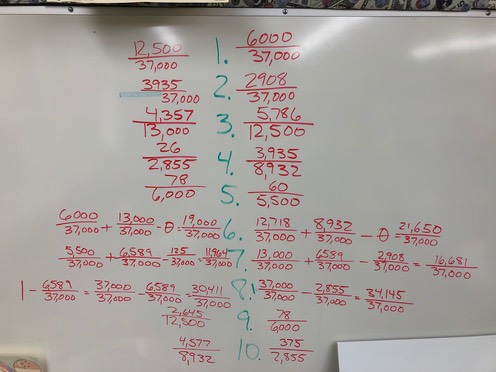 12,500/37,000 1. 6000/37,000
3935/37,000 2. 2908/37,000
4,357/13,000 3. 5,786/12,500
26/2,855 4. 3,935/8,932
78/6,000 5. 60/5,500
6000/37,000 + 13,000/37,000 - θ = 19,000/37,000 6. 12,718/37,000 + 8,932/37,000 - θ = 21,650/37,000
5,500/37,000 + 6,589/37,000 - 125/37,000 = 11,964/37,000 7. 13,000/37,000 + 6589/37,000 - 2,908/37,000 = 16,681/37,000
1 - 6589/37,000 = 37,000/37,000 - 6,589/37,000 = 30,411/37,000 8. 37,000/37,000 - 2,855/37,000 = 34,145/37,000
2,645/12,500 9. 78/6000
4,577/8,932 10. 375/2,855